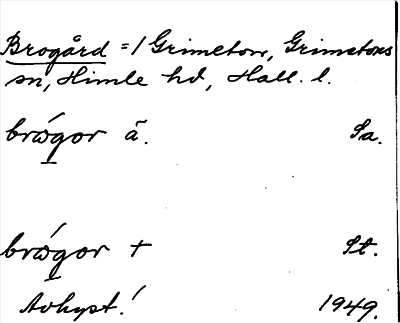 Brogård =/ Grimeton, Grimetons
sn, Himle hd, Hall. l.
brógor ā. Sa.
brógor + St.
Avhyst.! 1949.